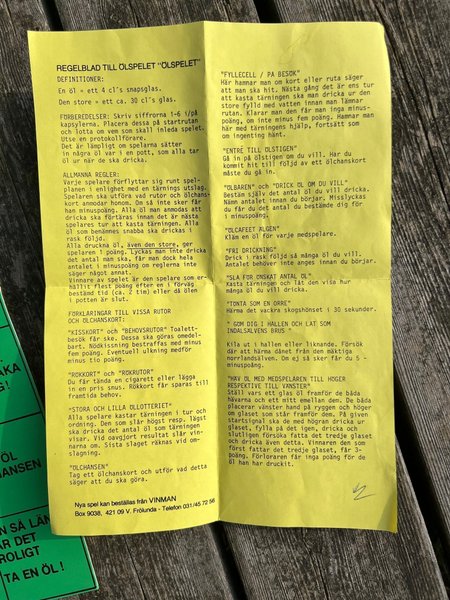 REGELBLAD TILL ÖLSPELET "ÖLSPELET"
DEFINITIONER:
En öl = ett 4 cl's snapsglas.
Den store = ett ca. 30 cl's glas.
FÖRBEREDELSER: Skriv siffrorna 1-6 i/på
kapsylerna. Placera dessa på startrutan
och lotta om vem som skall inleda spelet.
Utse en protokollförare.
Det är lämpligt om spelarna sätter
in några öl var i en pott, som alla tar
öl ur när de ska dricka.
ALLMÄNNA REGLER:
Varje spelare förflyttar sig runt spel-
planen i enlighet med en tärnings utslag.
Spelaren ska utföra vad rutor och ölchans-
korten anmodar honom. Om så inte sker får
han minuspoäng. Alla öl man anmodas att
dricka ska förtäras innan det är nästa
spelares tur att kasta tärningen. Alla
öl som benämnes snabba ska drickas i
rask följd.
Alla druckna öl, även den store, ger
spelaren 1 poäng. Lyckas man inte dricka
det antal man ska, får man dock hela
antalet i minuspoäng om reglerna inte
säger något annat.
Vinnare av spelet är den spelare som er-
hållit flest poäng efter en i förväg
bestämd tid (ca. 2 tim) eller då ölen
i potten är slut.
FÖRKLARINGAR TILL VISSA RUTOR
OCH ÖLCHANSKORT:
"KISSKORT" och "BEHOVSRUTOR" Toalett-
besök får ske. Dessa ska göras omedel-
bart. Nödkissning bestraffas med minus
fem poäng. Eventuell ulkning medför
minus tio poäng.
"ROKKORT" och "ROKRUTOR"
Du får tända en cigarett eller lägga
in en pris snus. Rökkort får sparas till
framtida behov.
"STORA OCH LILLA ÖLLOTTERIET"
Alla spelare kastar tärningen i tur och
ordning. Den som slår högst resp. lägst
ska dricka det antal öl som tärningen
visar. Vid oavgjort resultat slår vin-
narna om. Sista slaget räknas vid om-
slagning.
"ÖLCHANSEN"
Tag ett ölchanskort och utför vad detta
säger att du ska göra.
Nya spel kan beställas från VINMAN
Box 9038, 421 09 V. Frölunda - Telefon 031/45 72 56
"FYLLECELL / PÅ BESÖK"
Här hamnar man om kort eller ruta säger
att man ska hit. Nästa gång det är ens tur
att kasta tärningen ska man dricka ur den
store fylld med vatten innan man lämnar
rutan. Klarar man den får man inga minus-
poäng, om inte minus fem poäng. Hamnar man
här med tärningens hjälp, fortsätt som
om ingenting hänt.
"ENTRE TILL ÖLSTIGEN"
Gå in på ölstigen om du vill. Har du
kommit hit till följd av ett ölchanskort
måste du gå in.
"ÖLBAREN" och "DRICK ÖL OM DU VILL"
Bestäm själv det antal öl du vill dricka.
Nämn antalet innan du börjar. Misslyckas
du får du det antal du bestämde dig för
i minuspoäng.
"ÖLCAFEET ÄLGEN"
Kläm en öl för varje medspelare.
"FRI DRICKNING"
Drick i rask följd så många öl du vill.
Antalet behöver inte anges innan du börjar.
"SLÅ FÖR ÖNSKAT ANTAL ÖL"
Kasta tärningen och låt den visa hur
många öl du vill dricka.
"TONTA SOM EN ORRE"
Härma det vackra skogshönset i 30 sekunder.
" GÖM DIG I HALLEN OCH LÅT SOM
INDALSÄLVENS BRUS "
Kila ut i hallen eller liknande. Försök
där att härma dånet från den mäktiga
norrlandsälven. Om ej så sker får du 5 -
minuspoäng.
"HÄV ÖL MED MEDSPELAREN TILL HÖGER
RESPEKTIVE TILL VÄNSTER"
Ställ vars ett glas öl framför de båda
hävarna och ett mitt emellan dem. De båda
placerar vänster hand på ryggen och höger
om glaset som står framför dem. På given
startsignal ska de med högran dricka ur
glaset, fylla på det igen, dricka och
slutligen försöka fatta det tredje glaset
och dricka även detta. Vinnaren den som
först fattar det tredje glaset, får 3-
poäng. Förloraren får inga poäng för de
öl han har druckit.
ÖL
HANSEN
N SÅ LÄN
AR DET
ROLIGT
TA EN ÖL!